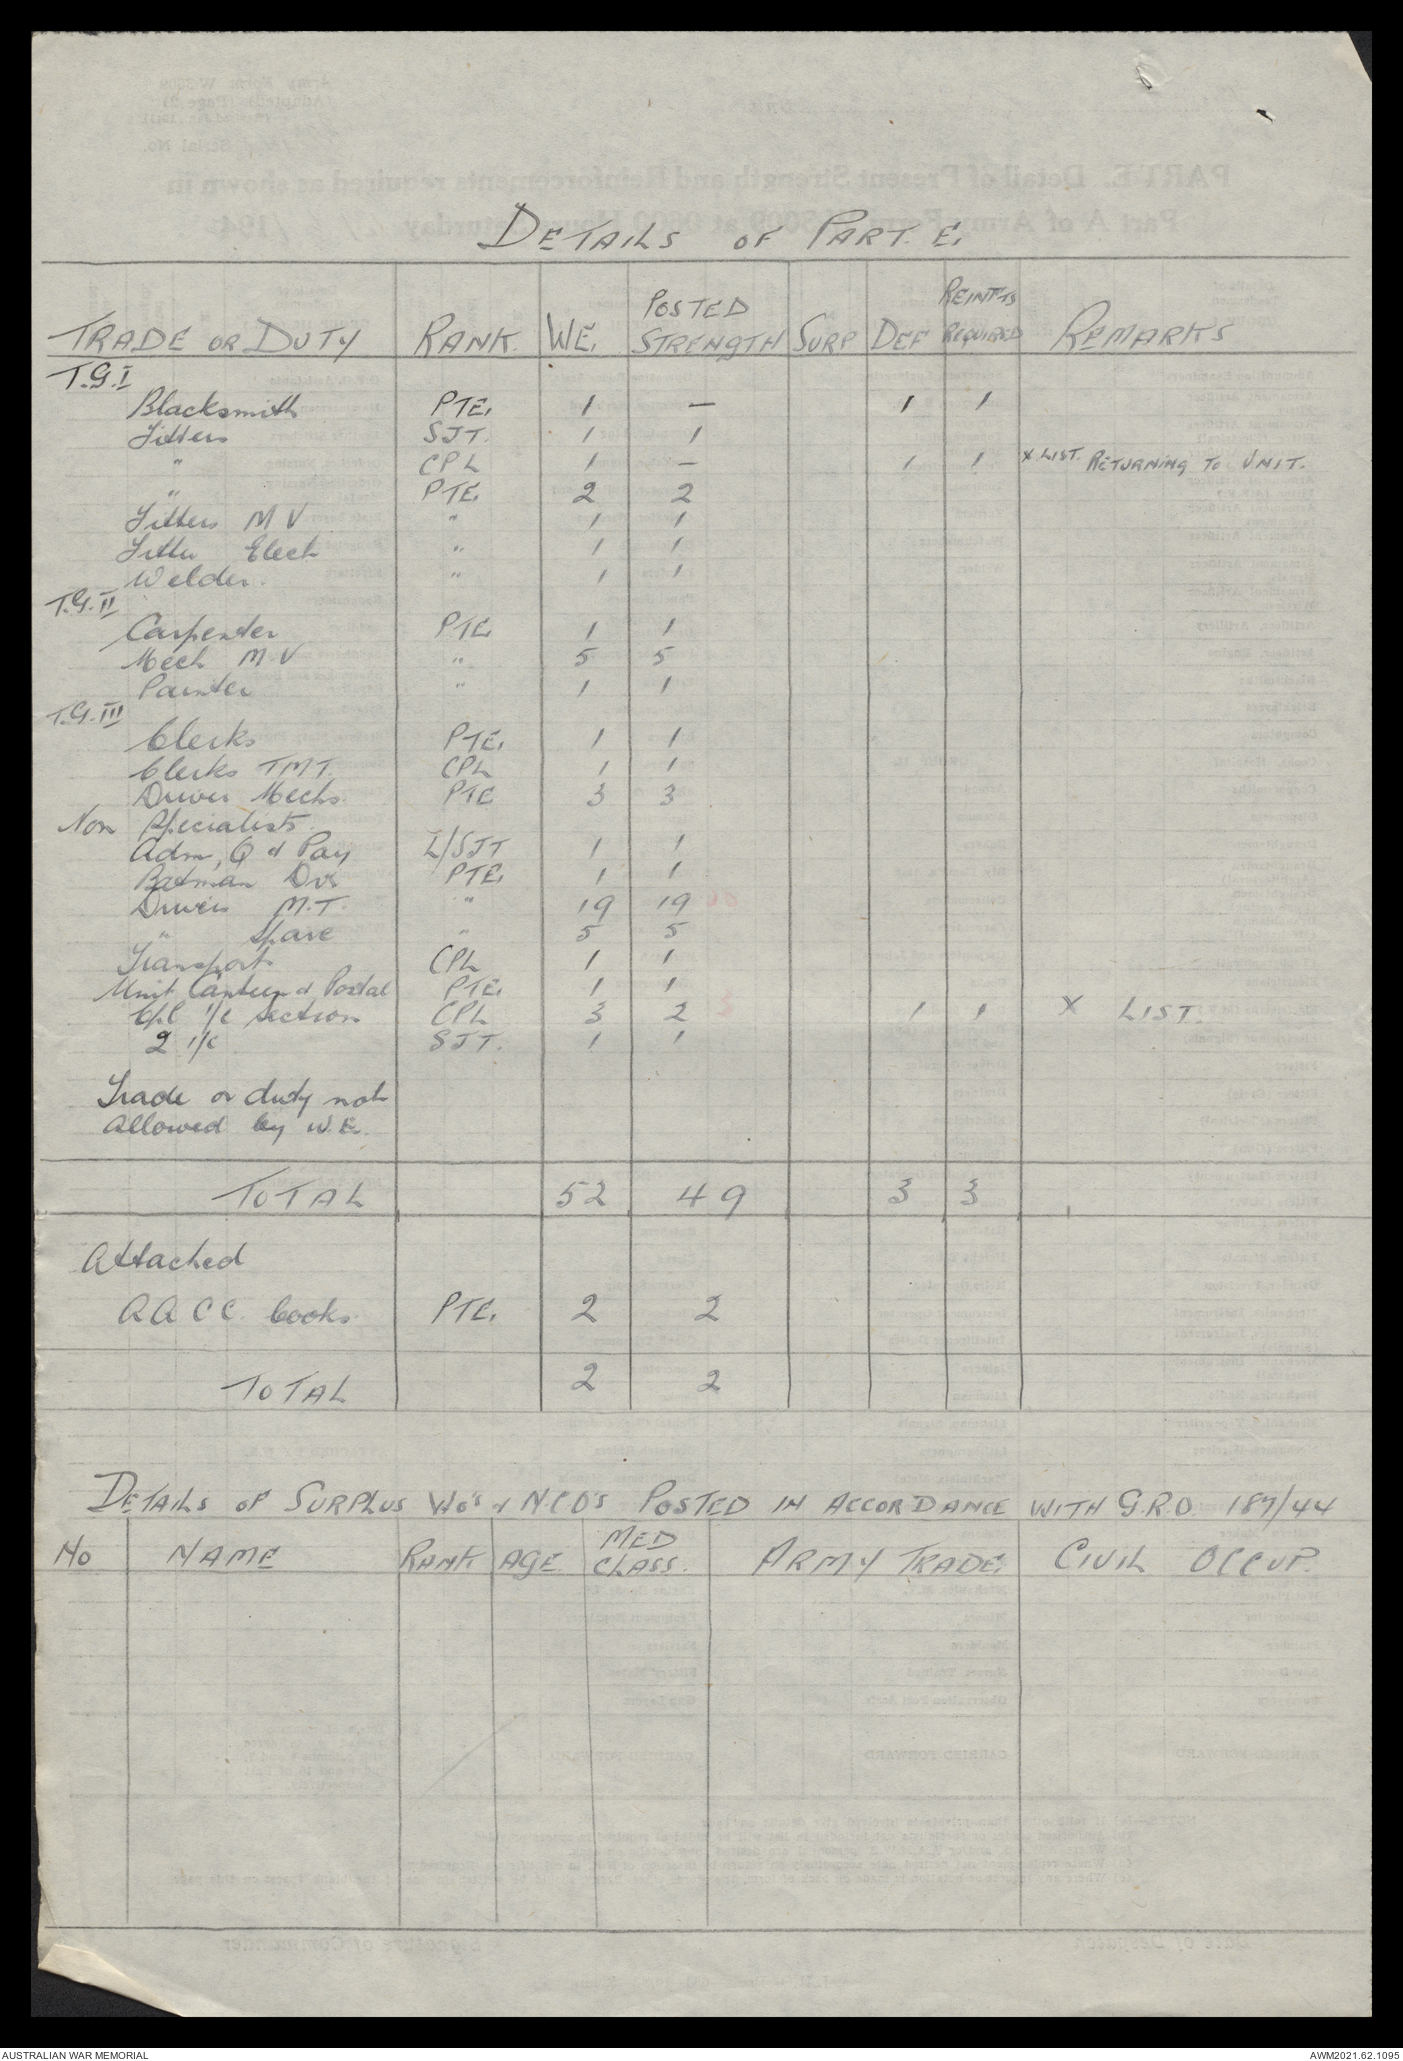 DETAILS OF PART. E.
TRADE OR DUTY RANK. WE. POSTED STRENGTH SURP DEF REINFTS REQUIRED REMARKS
T.G.I
Blacksmith PTE. 1 — 1 1
Fitters SJT. 1 1
" CPL 1 — 1 1 X LIST. RETURNING TO UNIT.
" PTE. 2 2
Fitters M V " 1 1
Fitter Elect " 1 1
Welder. " 1 1
T.G.II
Carpenter PTE. 1 1
Mech M.V " 5 5
Painter " 1 1
T.G.III
Clerks PTE. 1 1
Clerks TMT. CPL 1 1
Driver Mechs. PTE 3 3
Non Specialists.
Adm, Q & Pay L/SJT 1 1
Batman Dvr PTE. 1 1
Drivers M.T. " 19 19
" Spare " 5 5
Transport CPL 1 1
Unit Canteen & Postal PTE. 1 1
Cpl i/c section CPL 3 2 1 1 X LIST.
2 i/c SJT. 1 1
Trade or duty not
allowed by W.E.
TOTAL 52 49 3 3
Attached
A A C C. Cooks. PTE. 2 2
TOTAL 2 2
DETAILS OF SURPLUS WO's & N.C.O's POSTED IN ACCORDANCE WITH G.R.O. 187/44
No NAME RANK AGE. MED CLASS. ARMY TRADE. CIVIL OCCUP.
AUSTRALIAN WAR MEMORIAL AWM2021.62.1095